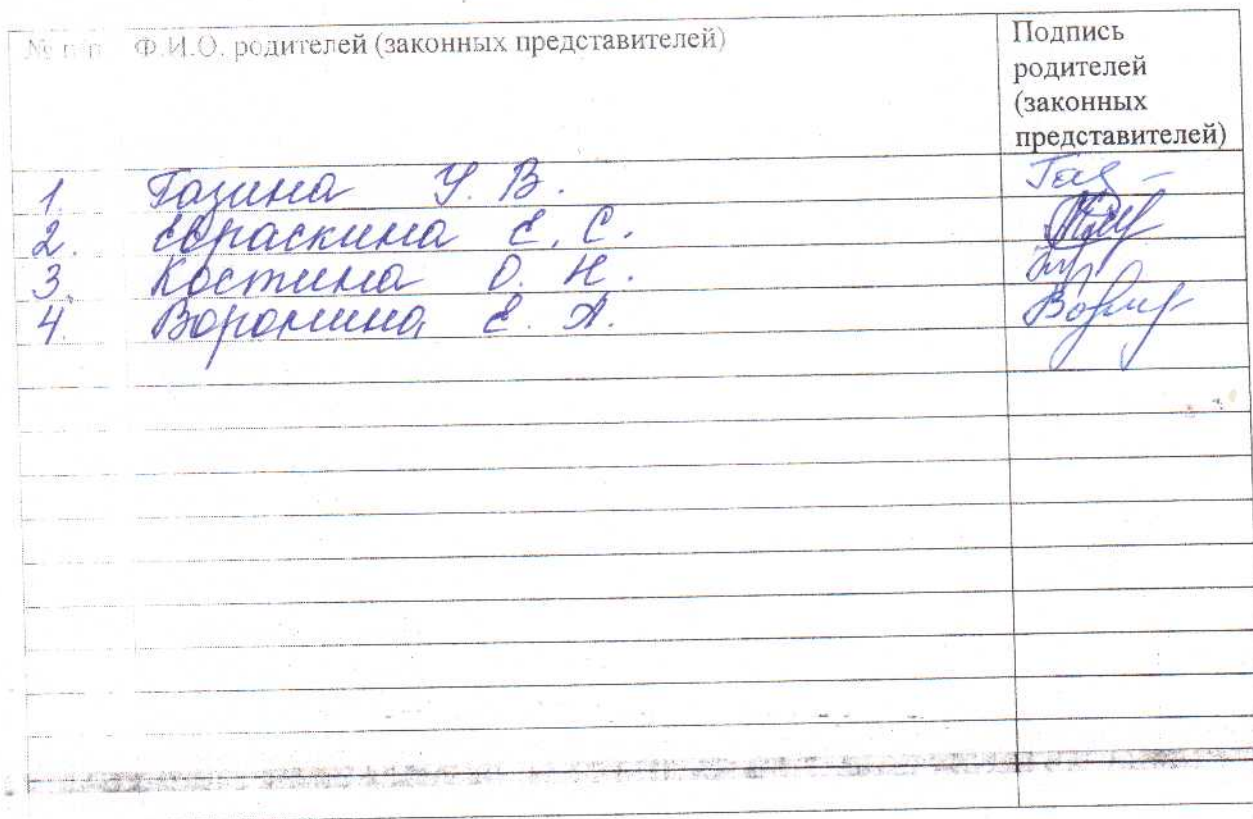 № п/п Ф.И.О. родителей (законных представителей) Подпись
родителей
(законных
представителей)
1. Газина У. В.
2. Евраскина Е. С.
3. Костина О. Н.
4. Воронина Е. А.